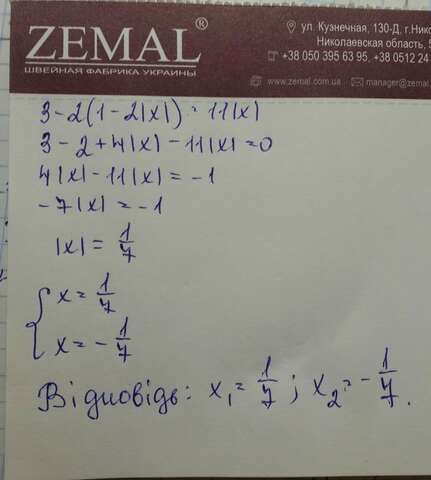 ZEMAL®
ШВЕЙНАЯ ФАБРИКА УКРАИНЫ
ул. Кузнечная, 130-Д, г.Нико
Николаевская область, 5
+38 050 395 63 95, +38 0512 24
www.zemal.com.ua manager@zemal
3-2(1-2|x|) = 11|x|
3-2+4|x|-11|x|=0
4|x|-11|x|=-1
-7|x|=-1
|x|= 1/7
{ x= 1/7
x= - 1/7
Відповідь: x₁= 1/7 ; x₂= - 1/7 .